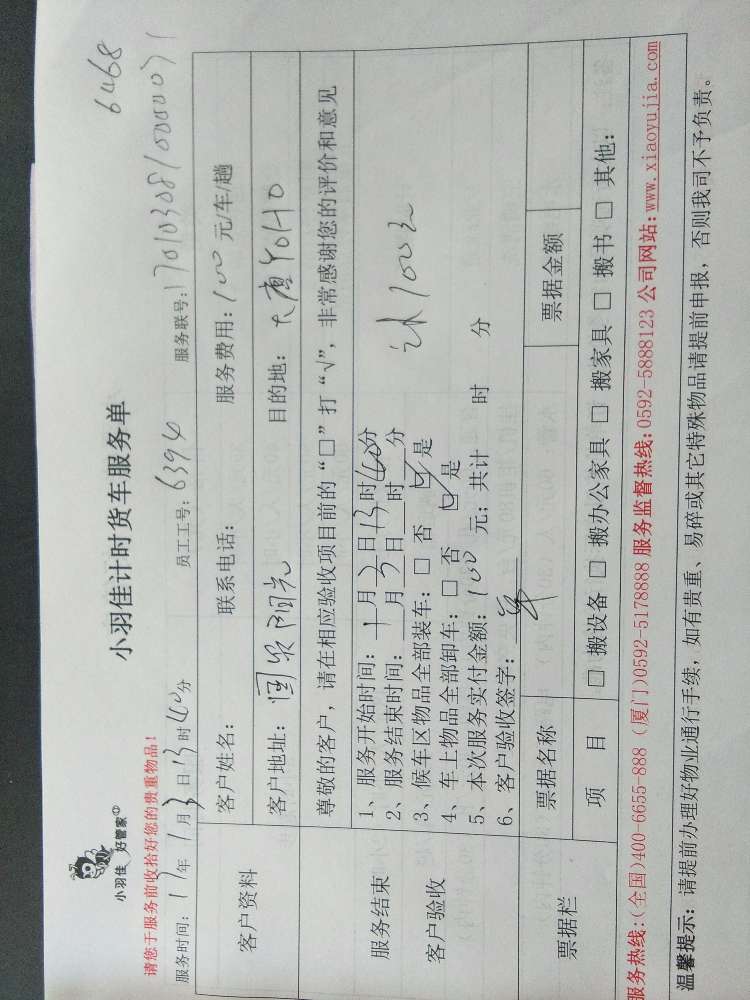 小羽佳 好管家
小羽佳计时货车服务单
6468
请您于服务前收拾好您的贵重物品!
服务时间: 17年1月3日13时40分 员工工号: 6394 服务联号: 1701030810000071
客户资料
客户姓名: 联系电话: 服务费用: 100元/车/趟
客户地址: 国贸阳光 目的地:
尊敬的客户, 请在相应验收项目前的“□”打“√”, 非常感谢您的评价和意见
服务结束
客户验收
1、服务开始时间: 1月3日13时40分
2、服务结束时间: 月3日 时 分
3、候车区物品全部装车: □ 否 ☑ 是
4、车上物品全部卸车: □ 否 ☑ 是
5、本次服务实付金额: 100 元; 共计 时 分
6、客户验收签字:
100元
票据栏
票据名称 票据金额
项 目 □ 搬设备 □ 搬办公家具 □ 搬家具 □ 搬书 □ 其他:
服务热线:(全国)400-6655-888 (厦门)0592-5178888 服务监督热线:0592-5888123 公司网站:www.xiaoyujia.com
温馨提示: 请提前办理好物业通行手续, 如有贵重、易碎或其它特殊物品请提前申报, 否则我司不予负责。